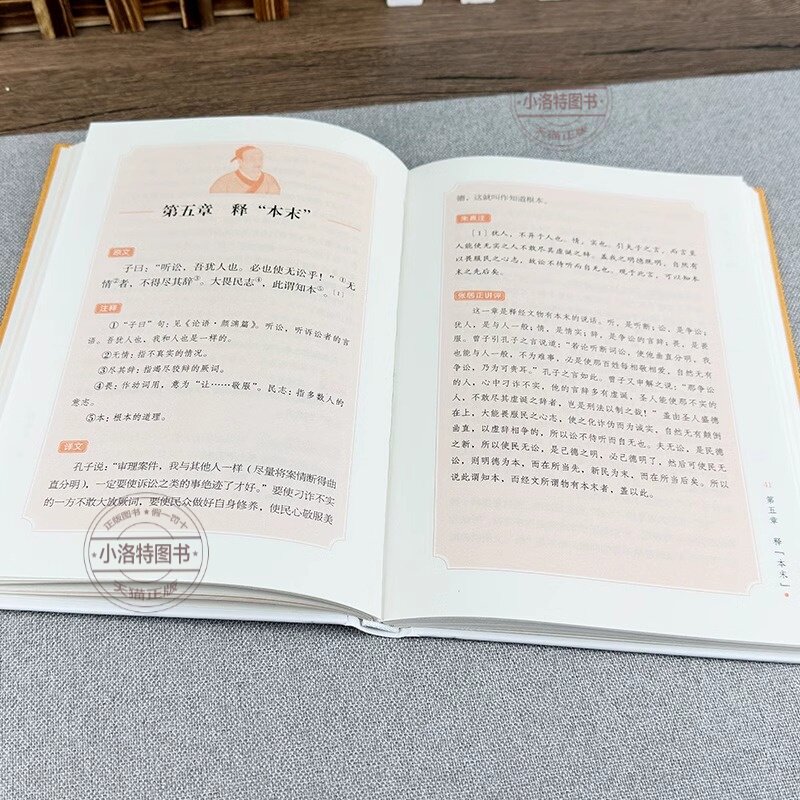 第五章 释“本末”
原文
子曰:“听讼,吾犹人也。必也使无讼乎!”①无
情②者,不得尽其辞③。大畏民志④,此谓知本⑤。[1]
注释
①“子曰”句:见《论语·颜渊篇》。听讼,听诉讼者的言
语。吾犹人也,我和人也是一样的。
②无情:指不真实的情况。
③尽其辞:指竭尽狡辩的厥词。
④畏:作动词用,意为“让……敬服”。民志:指多数人的
意志。
⑤本:根本的道理。
译文
孔子说:“审理案件,我与其他人一样(尽量将案情断得曲
直分明),一定要使诉讼之类的事绝迹了才好。”要使刁诈不实
的一方不敢大放厥词,要使民众做好自身修养,使民心敬服美
德,这就叫作知道根本。
朱熹注
[1]犹人,不异于人也。情,实也。引夫子之言,而言圣
人能使无实之人不敢尽其虚诞之辞。盖我之明德既明,自然有
以畏服民之心志,故讼不待听而自无也。观于此言,可以知本
末之先后矣。
张居正讲评
这一章是释经文物有本末的说话。听,是听断;讼,是争讼;
犹人,是与人一般;情,是情实;辞,是争讼的言辞;畏,是畏
服。曾子引孔子之言说道:“若论听断词讼,使他曲直分明,我
也能与人一般,不为难事,必是使那百姓每相敬相爱,自然无有
争讼,乃为可贵耳。”孔子之言如此。曾子又申解之说:“那争讼
的人,心中刁诈不实,他的言辞多有虚诞,圣人能使那不实的
人,不敢尽其虚诞之辞者,岂是刑法以制之哉!”盖由圣人盛德
在上,大能畏服民之心志,使之化诈伪而为诚实,自然无有颠倒
曲直,以虚辞相争的,所以讼不待听而自无也。夫无讼,是民德
之新,所以使民无讼,是己德之明,必己德明了,然后可使民无
讼,则明德为本,而在所当先,新民为末,而在所当后矣。所以
说此谓知本,而经文所谓物有本末者,盖以此。
41
第五章 释「本末」
小洛特图书
天猫正版
正版图书 假一罚十
小洛特图书
天猫正版